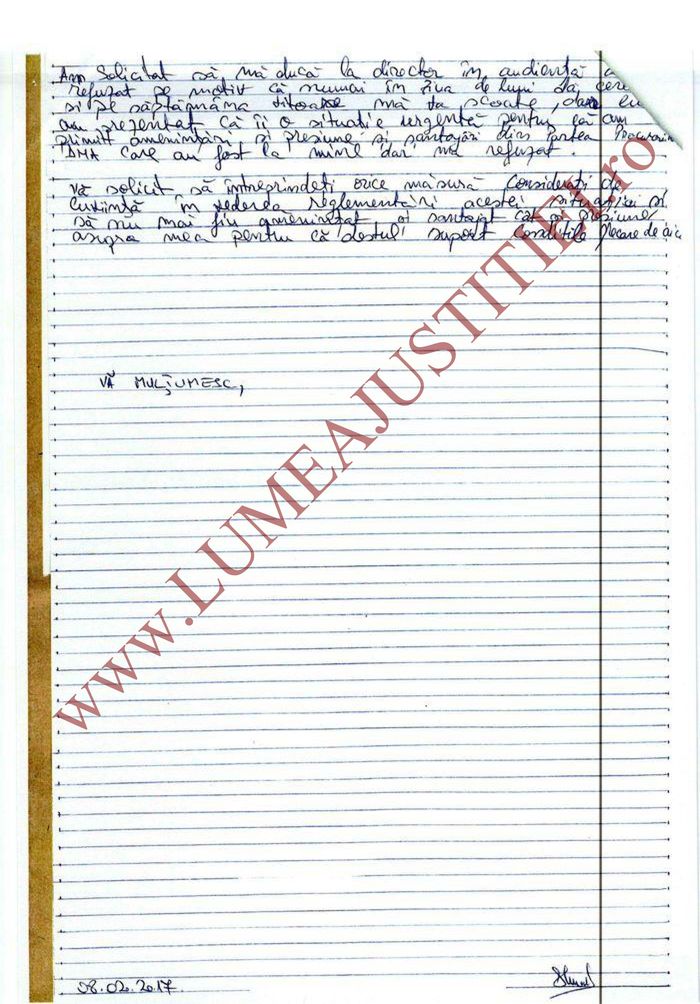 Am Solicitat să mă ducă la director în audiență a
refuzat pe motiv că numai în ziua de luni dă cere
și pe săptămâna viitoare mă va scoate, dar eu
am prezentat că îi o situație urgentă pentru că am
primit amenințări și presiune și santajări din partea
DNA care au fost la mine dar mă refuzat.
Vă solicit să întreprindeți orice măsură Considerați de
cuviință în vederea reglementării acestei situații și
să nu mai fiu amenințat și santajat cât și presiune
asupra mea pentru că destul suport Condițiile de aici
VĂ MULȚUMESC,
www.LUMEAJUSTITIEI.ro
08.02.2017